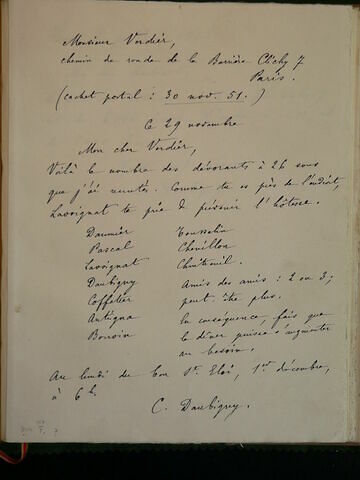 Monsieur Verdier,
chemin de ronde de la Barrière Clichy 7
Paris.
(cachet postal : 30 nov. 51.)
Ce 29 novembre
Mon cher Verdier,
Voilà le nombre des dévorants à 26 sous
que j'ai recrutés. Comme tu es près de l'endroit,
Lavoignat te prie de prévenir l'hôtesse.
Daumier Tousselin
Pascal Chevillon
Lavoignat Chintreuil.
Daubigny Amis des amis : 2 ou 3;
Coffetier peut-être plus.
Antigna En conséquence, fais que
Bonvin le dîner puisse s'augmenter
au besoin.
Au lundi du bon St. Eloi, 1er décembre,
à 6h.
C. Daubigny.